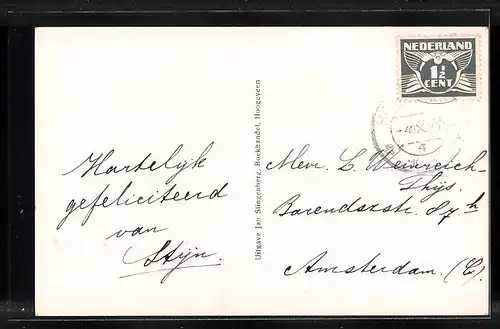 Hartelijk
gefeliciteerd
van
Stijn.
Uitgave Jan Slingenberg, Boekhandel, Hoogeveen
NEDERLAND
1½
CENT
Mevr. L. Weinreich-
Thijs.
Barendszstr. 87 h
Amsterdam. (C.)